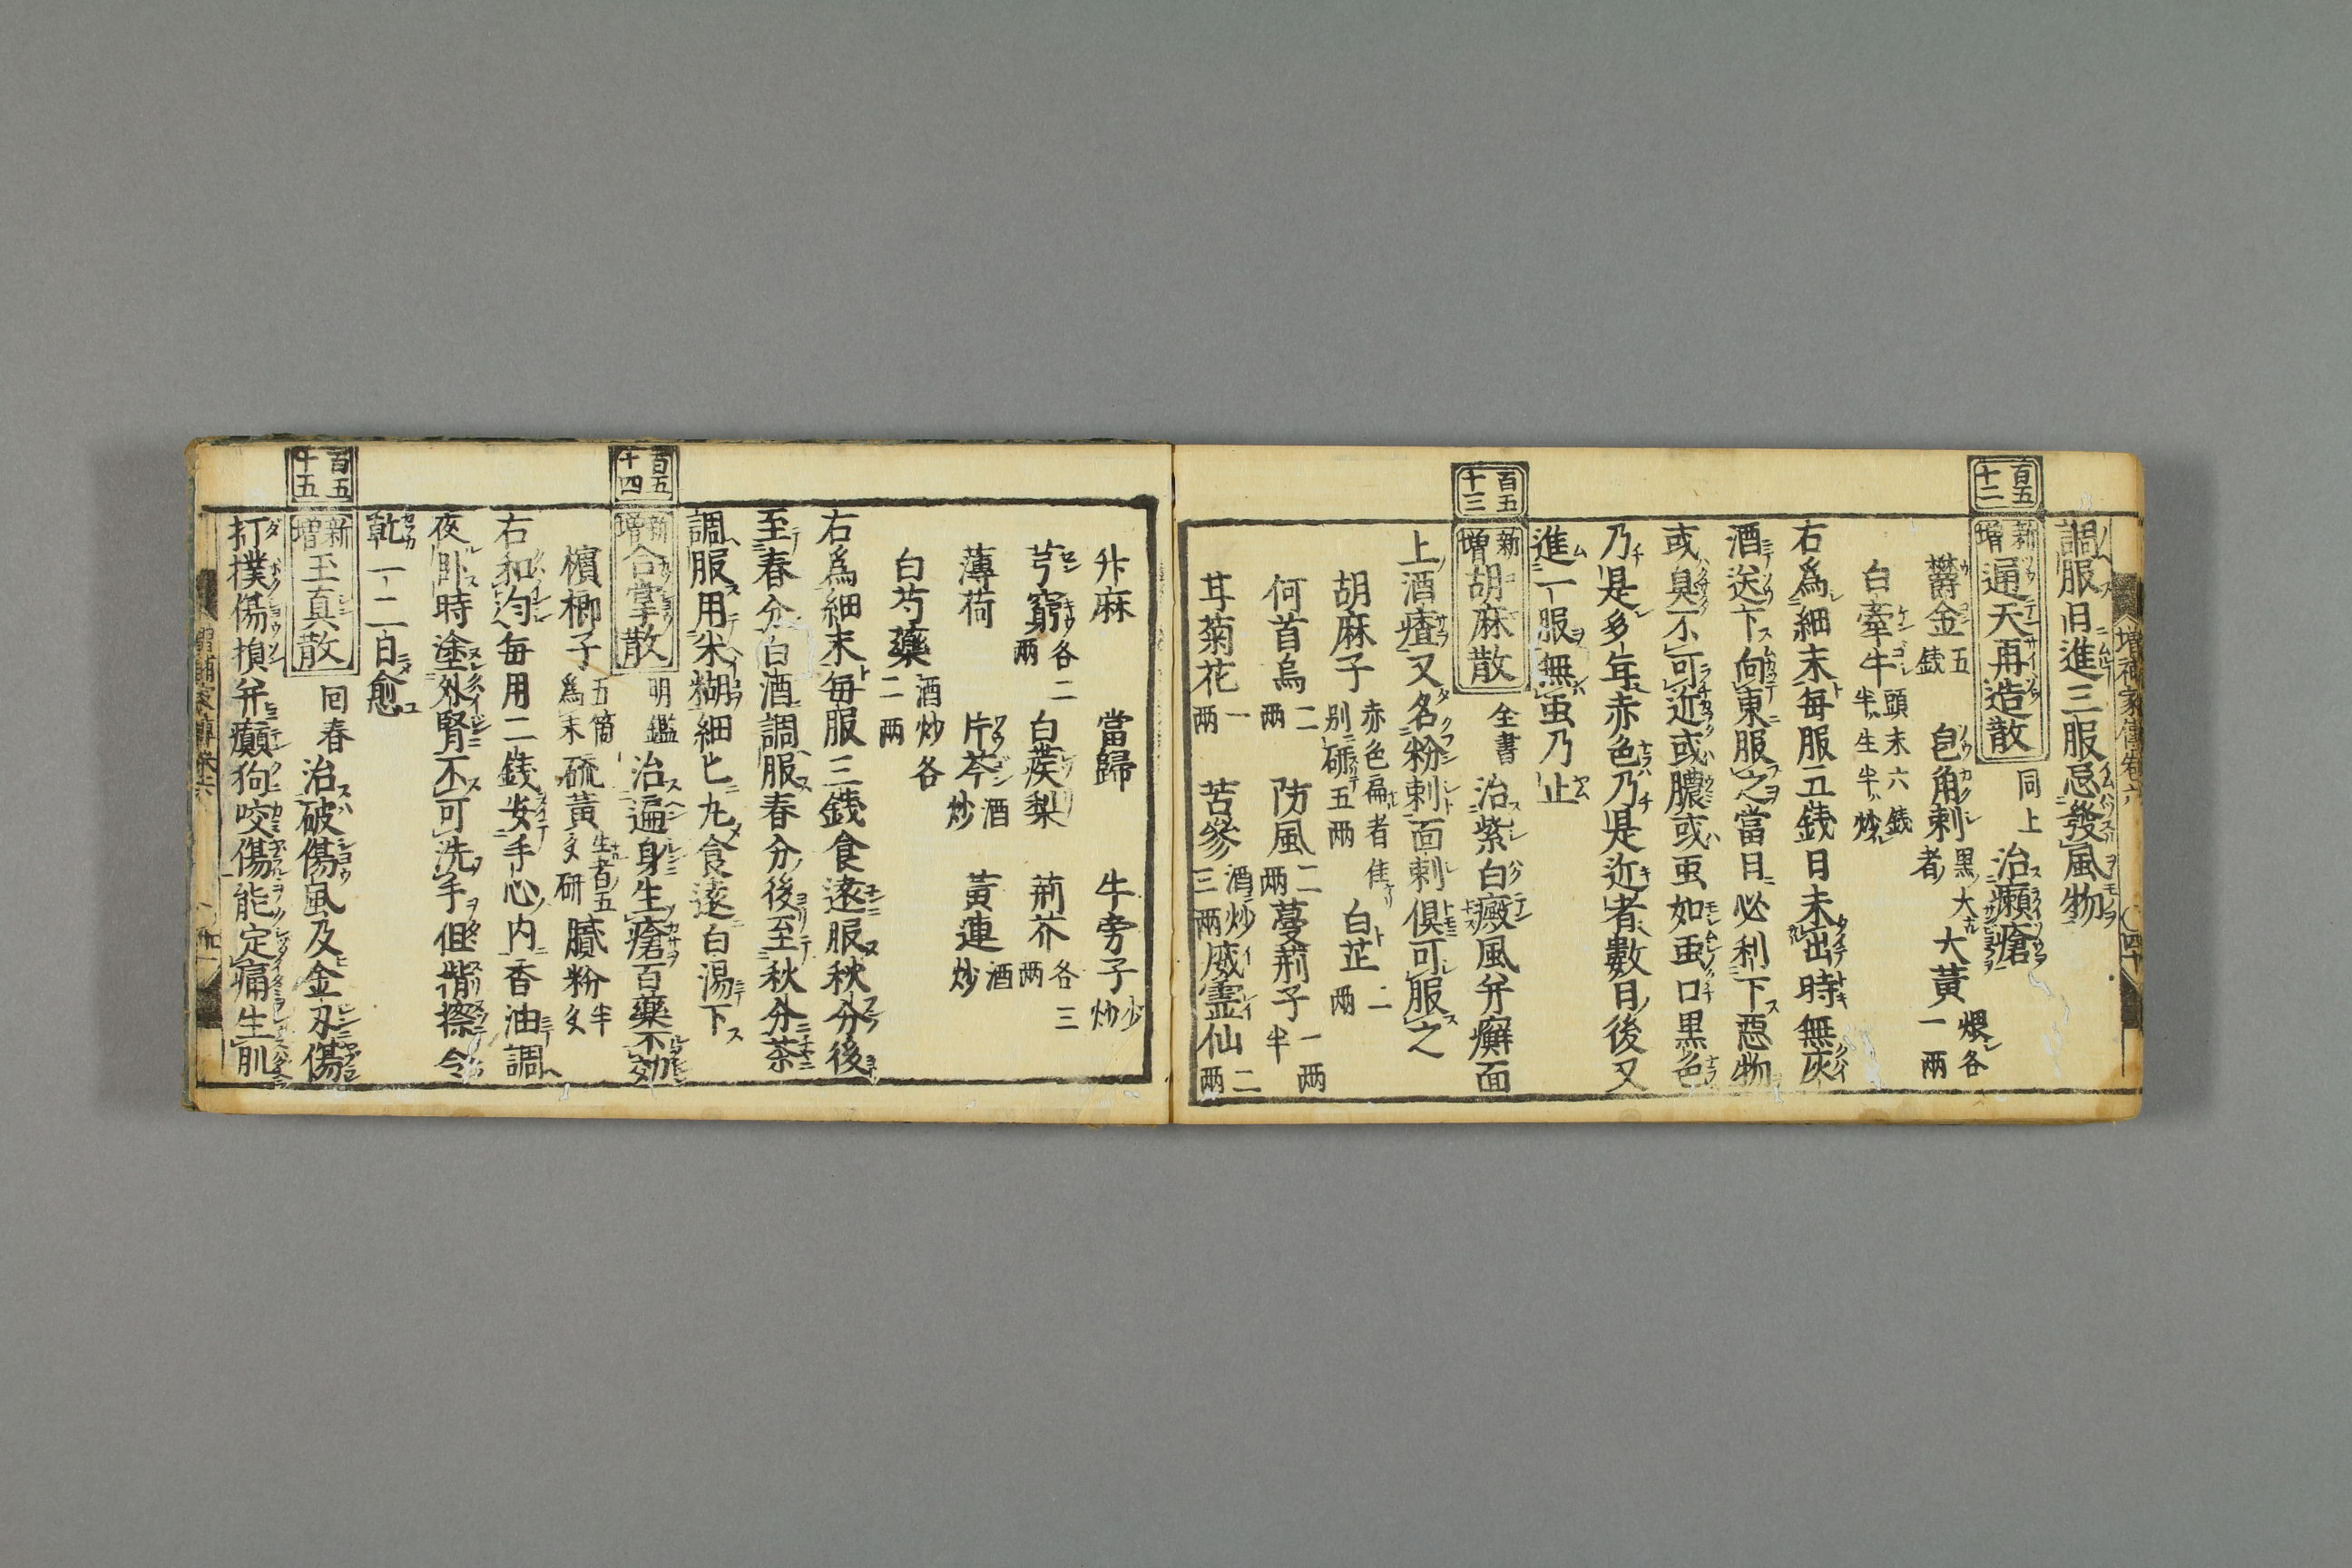 調服日進三服忌發風物
百五十二
新増通天再造散 同上 治癩瘡
欝金 五銭 皂角刺 黒大者 大黄 煨各一両
白牽牛 頭末六銭半生半炒
右為細末毎服五銭日未出時無灰
酒送下向東服之當日必利下惡物
或臭不可近或膿或虫如虫口黒色
乃是多年赤色乃是近者數日後又
進一服無虫乃止
百五十三
新増胡麻散 全書 治紫白癜風并癬面
上酒㾴又名粉刺面刺倶可服之
胡麻子 赤色扁者佳別研五両 白芷 二両
何首烏 二両 防風 二両 蔓荊子 一両半
甘菊花 一両 苦參 酒炒三両 威霊仙 二両
升麻 當歸 牛旁子 炒
芎窮 各二両 白蒺梨 荊芥 各三両
薄荷 片芩 酒炒 黃連 酒炒
白芍藥 酒炒各二両
右為細末毎服三銭食遠服秋分後
至春分白酒調服春分後至秋分茶
調服用米糊細匕丸食遠白湯下
百五十四
新増合掌散 明鑑 治遍身生瘡百藥不効
檳榔子 五箇為末 硫黃 生者五文研 膩粉 半文
右和匀毎用二銭安手心内香油調
夜卧時塗外腎不可洗手但揩擦令
乾一二日愈
百五十五
新増玉真散 回春 治破傷風及金刃傷
打撲傷損并癲狗咬傷能定痛生肌